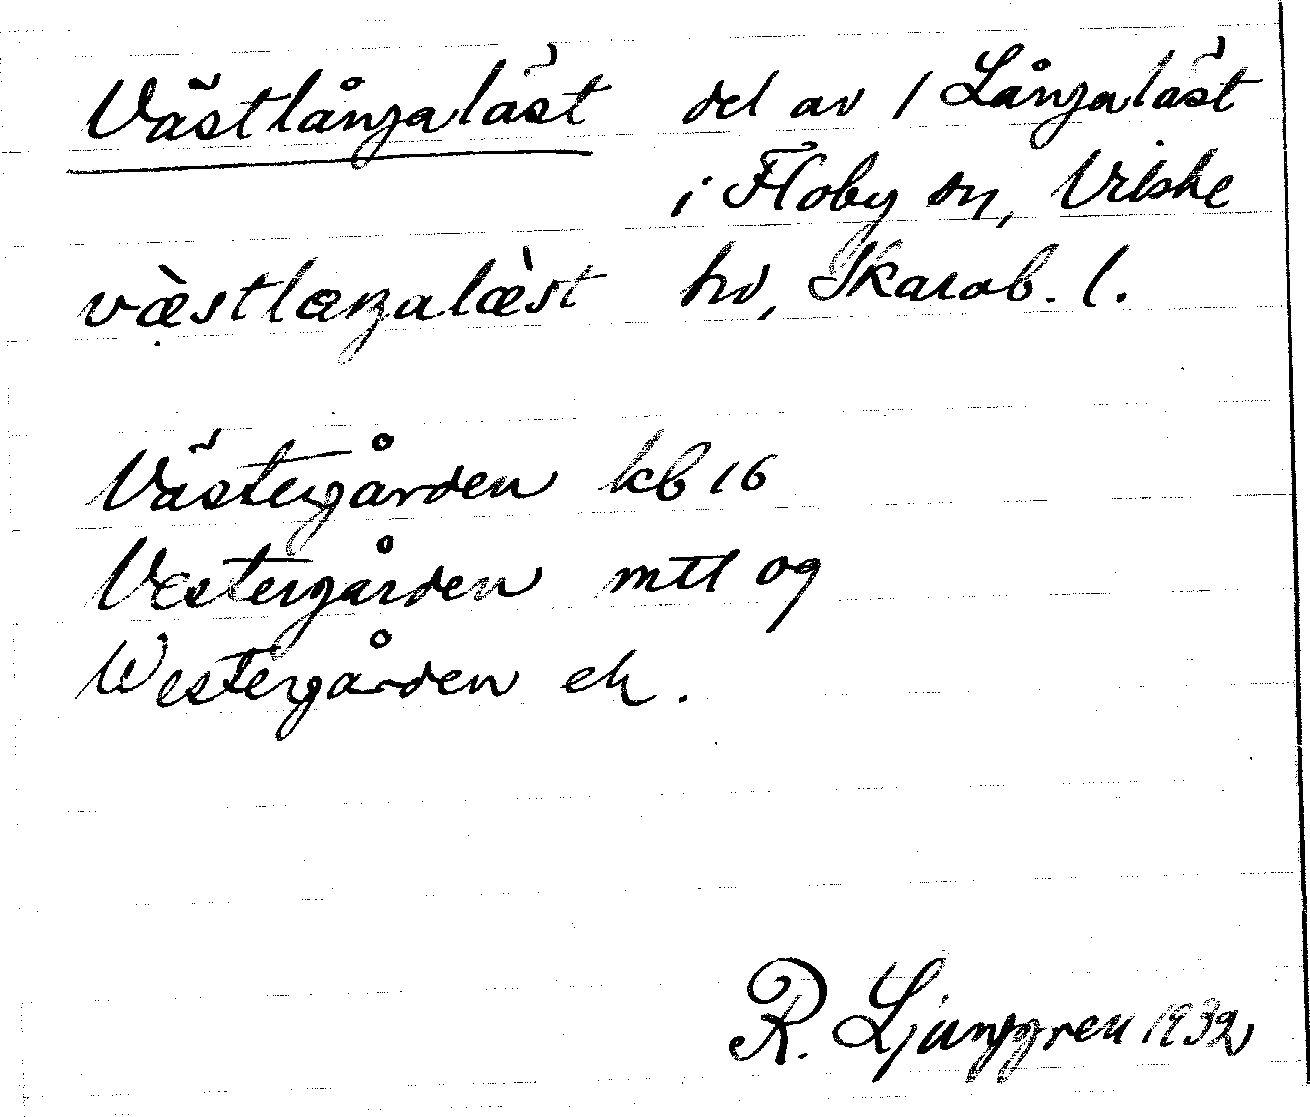 Västlångaläst del av 1 Långaläst
i Floby sn, Vilske
västlaŋalæ̀st hd, Skarab. l.
Västergården kb 16
Vestergården mtl og
Westergården ek.
R. Ljunggren 1932